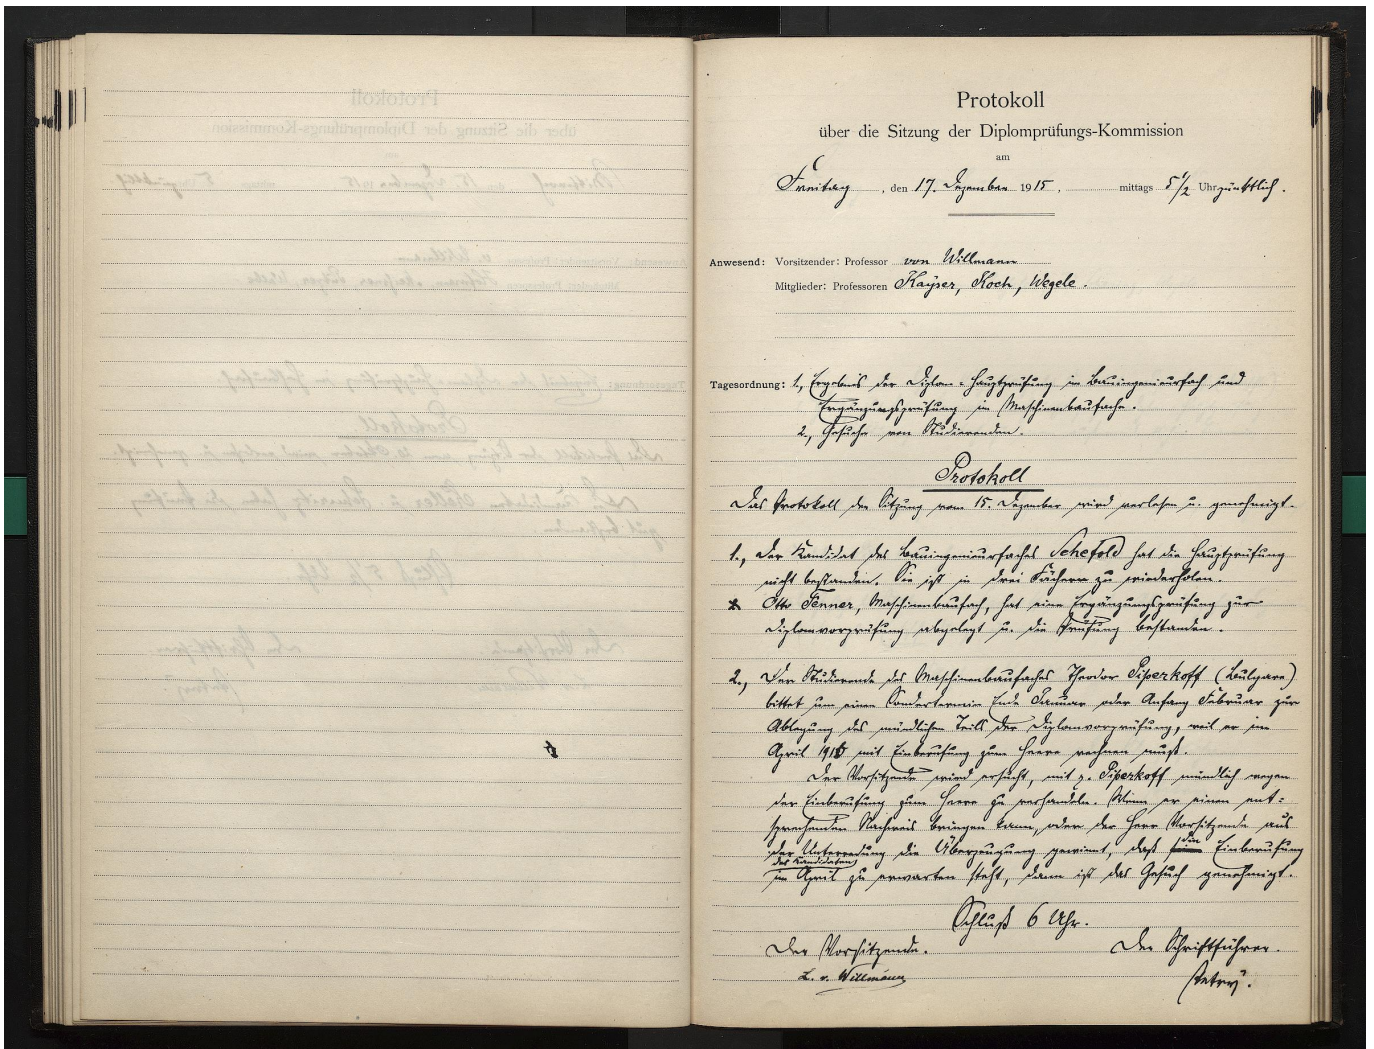 Protokoll
über die Sitzung der Diplomprüfungs-Kommission
am
Freitag, den 17. Dezember 1915. mittags 5 1/2 Uhr pünktlich.
Anwesend: Vorsitzender: Professor von Willmann
Mitglieder: Professoren Kayser, Koch, Wegele.
Tagesordnung: 1., Ergebnis der Diplom-Hauptprüfung im Bauingenieurfach und
Ergänzungsprüfung im Maschinenbaufache.
2., Gesuche von Studierenden.
Protokoll
Das Protokoll der Sitzung vom 15. Dezember wird verlesen u. genehmigt.
1., Der Kandidat des Bauingenieurfaches Schefold hat die Hauptprüfung
nicht bestanden. Sie ist in drei Fächern zu wiederholen.
Otto Fenner, Maschinenbaufach, hat eine Ergänzungsprüfung zur
Diplomvorprüfung abgelegt u. die Prüfung bestanden.
2., Der Studierende des Maschinenbaufaches Theodor Piperkoff (Bulgare)
bittet um einen Sondertermin Ende Januar oder Anfang Februar zur
Ablegung des mündlichen Teils der Diplomvorprüfung, weil er im
April 1916 mit Einberufung zum Heere rechnen muß.
Der Vorsitzende wird ersucht, mit H. Piperkoff mündlich wegen
der Einberufung zum Heere zu verhandeln. Wenn er einen ent-
sprechenden Nachweis bringen kann, oder der Herr Vorsitzende aus
der Unterredung die Überzeugung gewinnt, daß die Einberufung
des Kandidaten
im April zu erwarten steht, dann ist das Gesuch genehmigt.
Schluß 6 Uhr.
Der Vorsitzende. Der Schriftführer.
L. v. Willmann Petry.